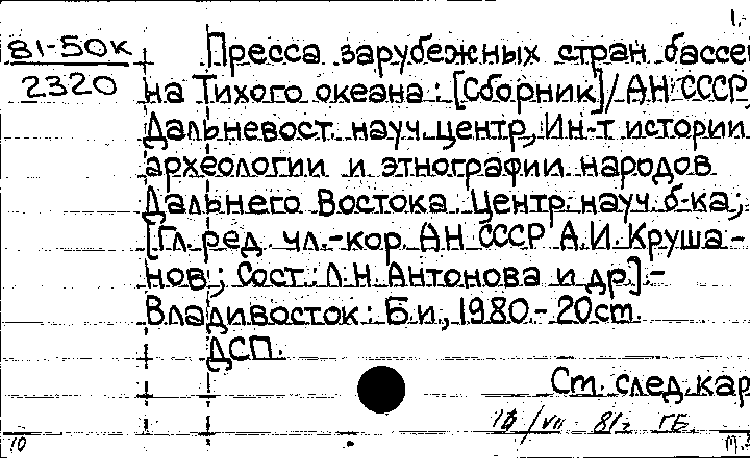 1.
81-50к
2320
Пресса зарубежных стран бассей
на Тихого океана: [Сборник]/АН СССР,
Дальневост. науч. центр, Ин-т истории
археологии и этнографии народов
Дальнего Востока. Центр. науч. б-ка;
[Гл. ред. чл.-кор. АН СССР А.И. Круша-
нов; Сост.: Л.Н. Антонова и др].-
Владивосток: Б.и., 1980.- 20 ст.
ДСП.
Ст. след. кар
VII 81г ГБ.
10